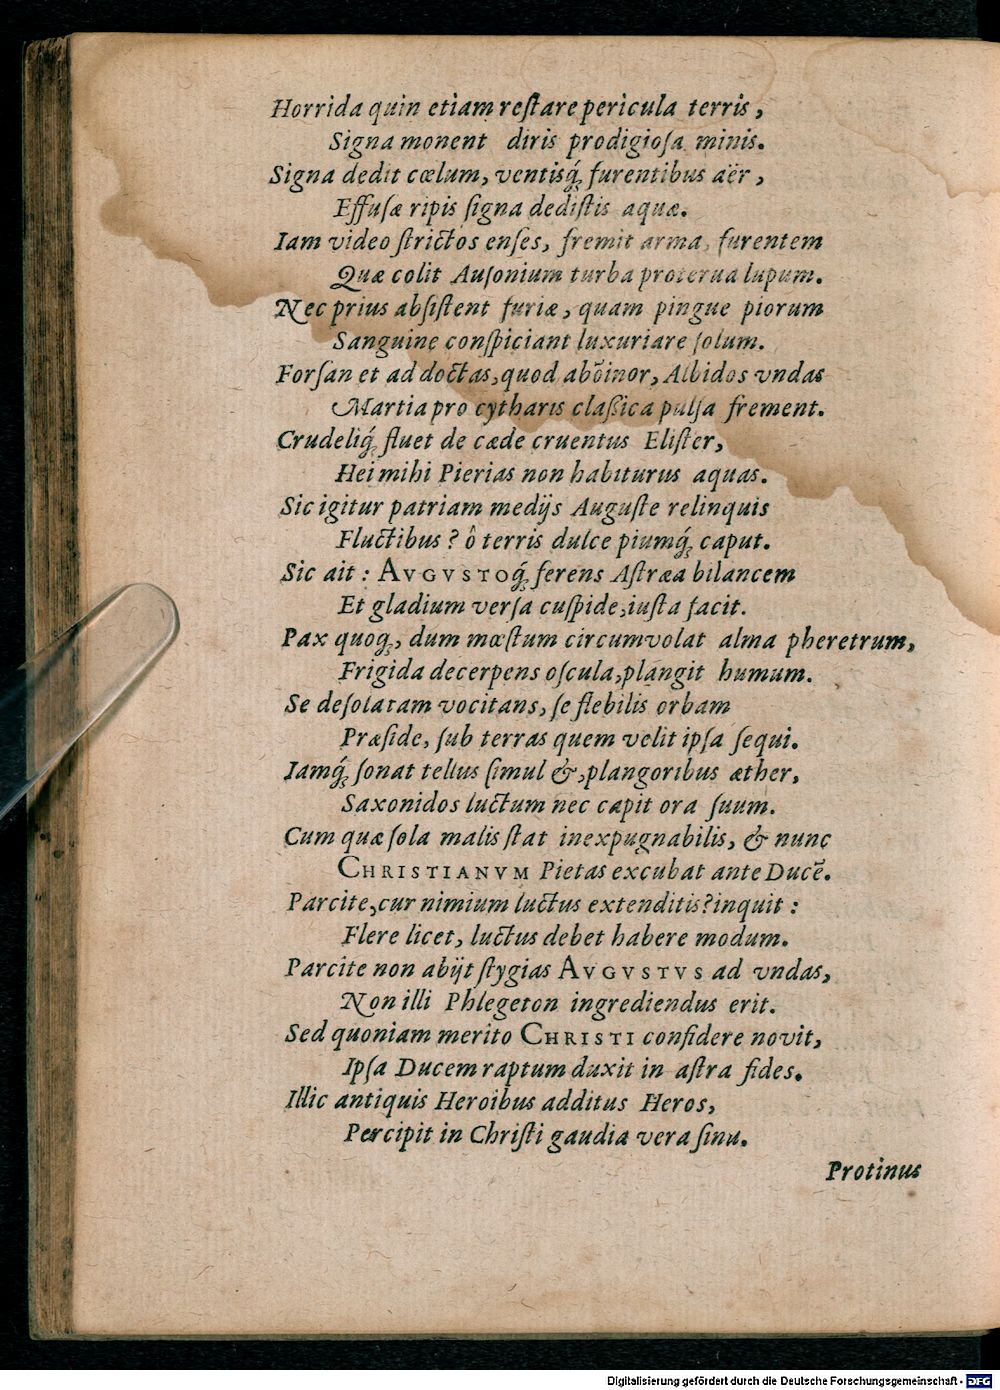 Horrida quin etiam reſtare pericula terris,
Signa monent diris prodigioſa minis.
Signa dedit cœlum, ventisq́; furentibus aër,
Effuſæ ripis ſigna dediſtis aquæ.
Iam video ſtrictos enſes, fremit arma, furentem
Quæ colit Auſonium turba proterua lupum.
Nec prius abſiſtent furiæ, quam pingue piorum
Sanguine conſpiciant luxuriare ſolum.
Forſan et ad doctas, quod abõinor, Albidos vndas
Martia pro cytharis claßica pulſa frement.
Crudeliq́; fluet de cæde cruentus Eliſter,
Hei mihi Pierias non habiturus aquas.
Sic igitur patriam medijs Auguſte relinquis
Fluctibus? ô terris dulce piumq́; caput.
Sic ait: AVGVSTOq́; ferens Aſtræa bilancem
Et gladium verſa cuſpide, iuſta facit.
Pax quoq;, dum mœſtum circumvolat alma pheretrum,
Frigida decerpens oſcula, plangit humum.
Se deſolatam vocitans, ſe flebilis orbam
Præſide, ſub terras quem velit ipſa ſequi.
Iamq́; ſonat tellus ſimul &, plangoribus æther,
Saxonidos luctum nec capit ora ſuum.
Cum quæ ſola malis ſtat inexpugnabilis, & nunc
CHRISTIANVM Pietas excubat ante Ducẽ.
Parcite, cur nimium luctus extenditis? inquit:
Flere licet, luctus debet habere modum.
Parcite non abijt ſtygias AVGVSTVS ad vndas,
Non illi Phlegeton ingrediendus erit.
Sed quoniam merito CHRISTI confidere novit,
Ipſa Ducem raptum duxit in aſtra fides.
Illic antiquis Heroibus additus Heros,
Percipit in Chriſti gaudia vera ſinu.
Protinus
Digitalisierung gefördert durch die Deutsche Forschungsgemeinschaft - DFG